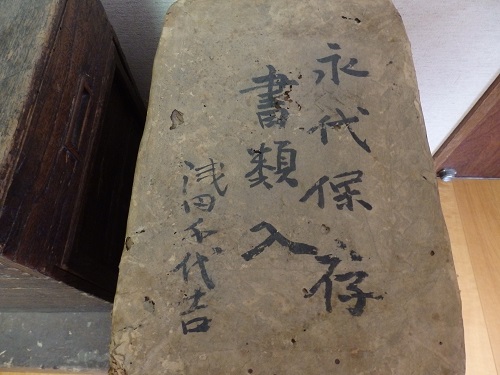 永代保存
書類入
浅田千代吉